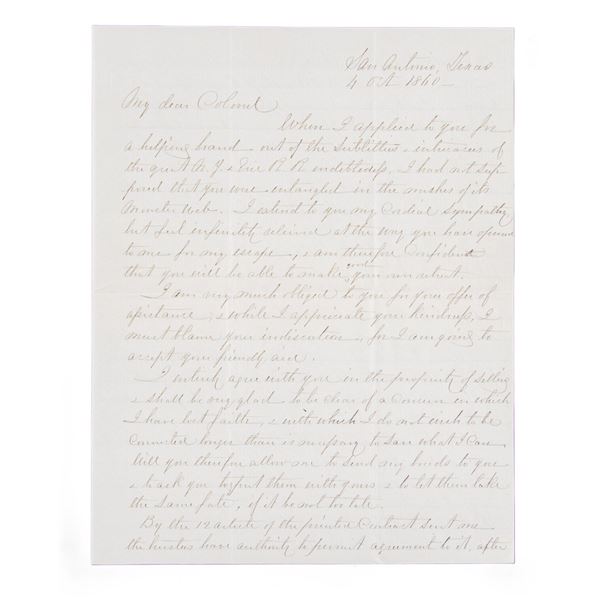 San Antonio, Texas
4 Oct 1860 -
My dear Colonel
When I applied to you for
a helping hand out of the subtilties & intricacies of
the great N.Y. & Erie R R indebtedness, I had not sup-
posed that you were entangled in the meshes of its
Monster Web. I extend to you my Cordial Sympathy
but feel infinitely relieved at the way you have opened
to me for my escape, & am therefore Confident
that you will be able to make good your own retreat.
I am very much obliged to you for your offer of
assistance, & while I appreciate your kindness, I
must blame your indiscretion, for I am going to
accept your friendly aid.
I entirely agree with you in the propriety of selling
& shall be very glad to be clear of a concern in which
I have lost faith, & with which I do not wish to be
connected longer than is necessary to save what I can
Will you therefore allow me to send my bonds to you
& to ask you to put them with yours & to let them take
the same fate, if it be not too late.
By the 12 article of the printed Contract sent me
the trustees have authority to permit agreement to it, after